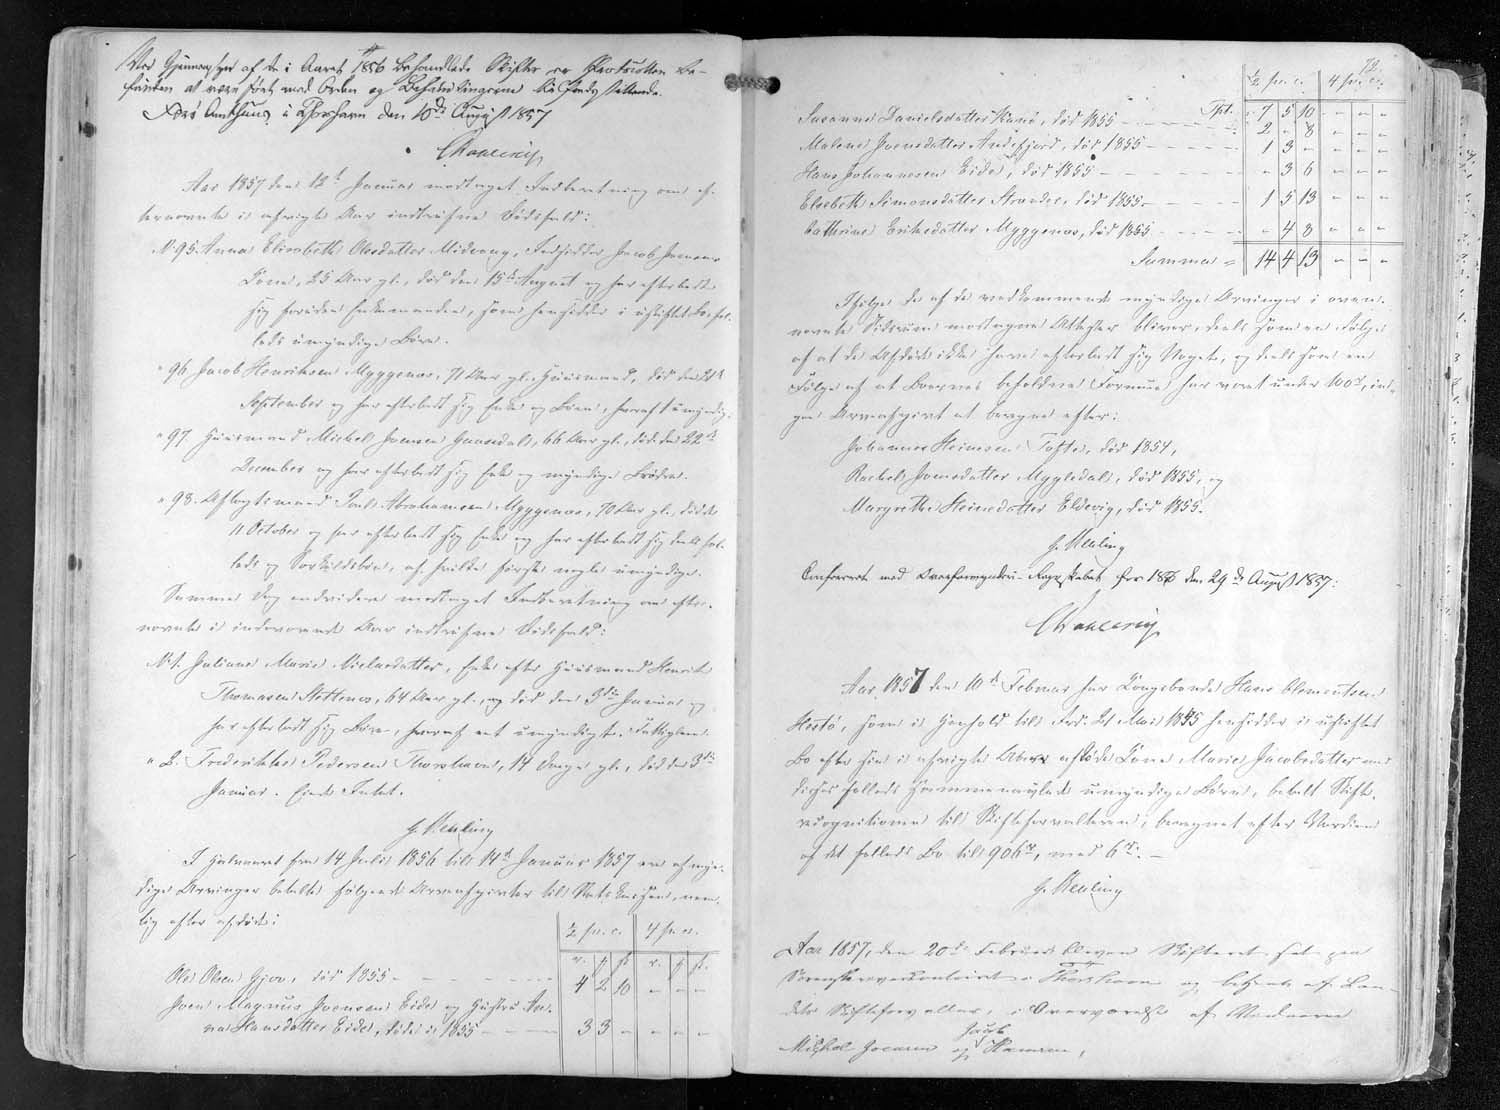 Ved Gjennemsyn af de i Aaret 1856 behandlede Skifter er Protocollen be-
funden at være ført med Orden og Behandlingen
Færø Amthuus i Thorshavn den 10de August 1857
Dahlerup
Aar 1857 den 12te Januar modtaget Indberetning om ef-
ternævnte i afvigte Aar indtrufne Dødsfald:
N. 95. Anna Elisabeth Olesdatter Midvaag, Indsidder Jacob Joensens
Kone, 25 Aar gl., død den 15de August og har efterladt
sig foruden Enkemanden, som hensidder i uskiftet Bo, fæl-
leds umyndige Børn.
" 96. Jacob Henriksen Myggenæs, 71 Aar gl. Huusmand, død den 21de
September og har efterladt sig Enke og Børn, hvoraf 1 umyndig.
" 97. Huusmand Michel Joensen Gaasedal, 66 Aar gl., død den 22de
December og har efterladt sig Enke og myndige Brødre.
" 98. Aftægtsmand Poul Abrahamsen Myggenæs, 70 Aar gl., død den
11 October og har efterladt sig Enke og har efterladt sig deels fæl-
leds og Særkuldsbørn, af hvilke første nogle umyndige.
Samme Dag endvidere modtaget Indberetning om efter-
nævnte i indeværende Aar indtrufne Dødsfald:
N. 1. Juliane Marie Niclasdatter, Enke efter Huusmand Henrik
Thomasen Slettenæs, 64 Aar gl., og død den 3die Januar og
har efterladt sig Børn, hvoraf eet umyndigt. Fattiglem.
" 2. Frederikke Pedersen Thorshavn, 14 Dage gl., død den 3die
Januar. Eiede Intet.
H. Müller
I Halvaaret fra 14 Juli 1856 til 14de Januar 1857 ere af myn-
dige Arvinger betalte følgende Arveafgivter til Statskassen, nem-
lig efter afdøde:
½ pr. c. 4 pr. ct.
r. ß r.
Ole Olsen Gjov, død 1855 — — — 4 2 10 " " "
Joen Magnus Joensen Eide og Hustru An-
na Hansdatter Eide, døde i 1855 — — — 3 3 " " " "
½ pr. c. 4 pr. ct.
Tpt. 7 5 10 " " "
Susanne Danielsdatter Kunø, død 1855 — — — 2 " 8 " " "
Malene Joensdatter Andefjord, død 1855 — — — 1 3 " " " "
Hans Johannesen Eide, død 1855 — — — " 3 6 " " "
Elsebeth Simonsdatter Strænder, død 1855 — — — 1 5 13 " " "
Cathrine Eriksdatter Myggenæs, død 1855 — — — " 4 8 " " "
Summa = 14 4 13 " " "
Ifølge de af de vedkommende myndige Arvinger i oven-
nævnte Tidsrum modtagne Attester bliver, deels som en Følge
af at de Afdøde ikke have efterladt sig Noget, og deels som en
Følge af at Boernes beholdne Formue har været under 100r, in-
gen Arveafgivt at beregne efter:
Johannes Heinesen Tofte, død 1854,
Rachel Joensdatter Mygledal, død 1855, og
Margrethe Heinesdatter Eldevig, død 1855.
H. Müller
Confereret med Overformynderi-Regnskabet for 1856 den 29de August 1857:
Dahlerup
Aar 1857 den 10de Februar har Kongsbonde Hans Clementsen
Hestø, som i Henhold til Frd. 21 Mai 1845 hensidder i uskiftet
Bo efter sin i afvigte Aar afdøde Kone Marie Jacobsdatter med
disses fælleds hjemmeværende umyndige Børn, betalt Skifte-
recognitionen til Skifteforvalteren, beregnet efter Værdien
af det fælleds Bo til 906r, med 6r. —
H. Müller
Aar 1857, den 20de Februar blev Skifteret sat paa
Sorenskrivercontoiret i Thorshavn og betjent af Lan-
dets Skifteforvalter, i Overværelse af Vidnerne
Michel Joensen og Jacob Hansen,